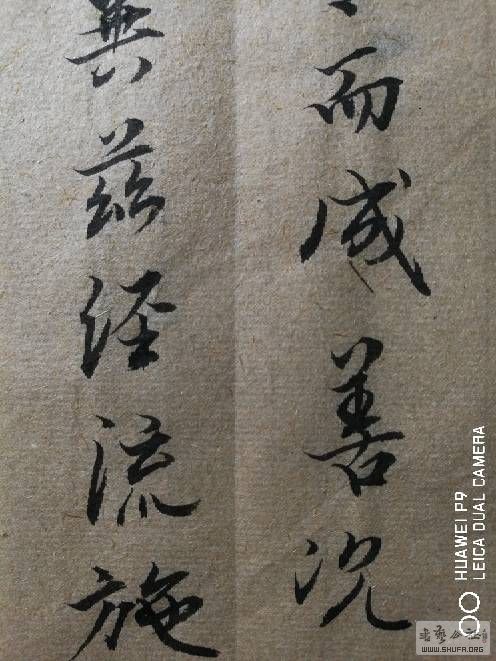 而成善况
冀兹经流施
HUAWEI P9
LEICA DUAL CAMERA
WWW.SHUFA.ORG